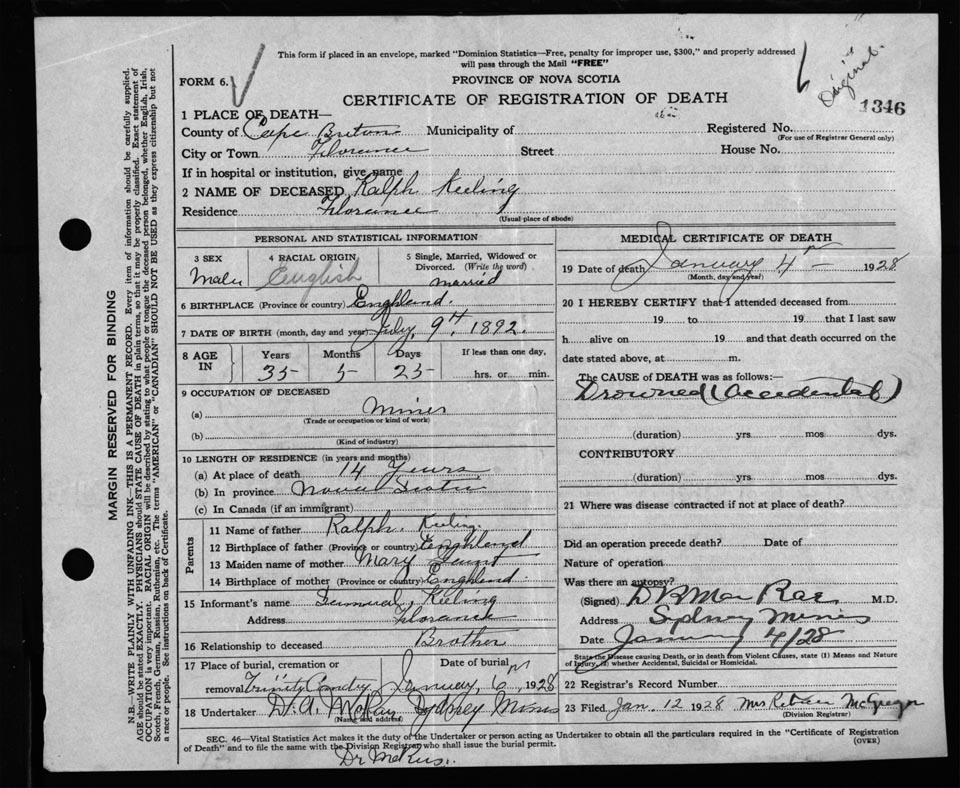 This form if placed in an envelope, marked "Dominion Statistics—Free, penalty for improper use, $300," and properly addressed
will pass through the Mail "FREE"
Original
FORM 6.
PROVINCE OF NOVA SCOTIA
CERTIFICATE OF REGISTRATION OF DEATH
1346
1 PLACE OF DEATH—
County of Cape Breton Municipality of Registered No.
(For use of Registrar General only)
City or Town Florance Street House No.
If in hospital or institution, give name
2 NAME OF DECEASED Ralph Keeling
Residence Florance
(Usual place of abode)
PERSONAL AND STATISTICAL INFORMATION
3 SEX 4 RACIAL ORIGIN 5 Single, Married, Widowed or
Divorced. (Write the word)
Male English married
6 BIRTHPLACE (Province or country) Enghland.
7 DATE OF BIRTH (month, day and year) July, 9th, 1892.
8 AGE IN Years Months Days If less than one day,
35 5 25 hrs. or min.
9 OCCUPATION OF DECEASED
(a) Miner
(Trade or occupation or kind of work)
(b)
(Kind of industry)
10 LENGTH OF RESIDENCE (in years and months)
(a) At place of death 14 Years
(b) In province Nova Scotia
(c) In Canada (if an immigrant)
Parents
11 Name of father Ralph Keeling.
12 Birthplace of father (Province or country) Enghland
13 Maiden name of mother Mary
14 Birthplace of mother (Province or country) Enghland.
15 Informant's name Samual Keeling
Address Florance
16 Relationship to deceased Brother
17 Place of burial, cremation or Date of burial
removal Trinity January, 6, 1928
18 Undertaker D. A. McRay Sydney Mines
(Name and address)
MEDICAL CERTIFICATE OF DEATH
19 Date of death January 4th 1928
(Month, day and year)
20 I HEREBY CERTIFY that I attended deceased from
19 to 19 that I last saw
h alive on 19 and that death occurred on the
date stated above, at m.
The CAUSE of DEATH was as follows:—
Drowned (Accidental)
(duration) yrs. mos. dys.
CONTRIBUTORY
(duration) yrs. mos. dys.
21 Where was disease contracted if not at place of death?
Did an operation precede death? Date of
Nature of operation
Was there an autopsy?
(Signed) Mac Rae M.D.
Address Sydney Mines
Date January 4/28
State the Disease causing Death, or in death from Violent Causes, state (1) Means and Nature
of Injury, (2) whether Accidental, Suicidal or Homicidal.
22 Registrar's Record Number
23 Filed Jan. 12 1928 Mrs McGregor
(Division Registrar)
SEC. 46—Vital Statistics Act makes it the duty of the Undertaker or person acting as Undertaker to obtain all the particulars required in the "Certificate of Registration
of Death" and to file the same with the Division Registrar who shall issue the burial permit.
(OVER)
MARGIN RESERVED FOR BINDING
N.B.—WRITE PLAINLY WITH UNFADING INK—THIS IS A PERMANENT RECORD. Every item of information should be carefully supplied.
AGE should be stated EXACTLY. PHYSICIANS should STATE CAUSE OF DEATH in plain terms, so that it may be properly classified. Exact statement of
OCCUPATION is very important. RACIAL ORIGIN will be described by stating to what people or tongue the deceased person belonged, whether English, Irish,
Scotch, French, German, Russian, Ruthenian, etc. The terms "AMERICAN" or "CANADIAN" SHOULD NOT BE USED as they express citizenship but not
a race or people. See instructions on back of Certificate.